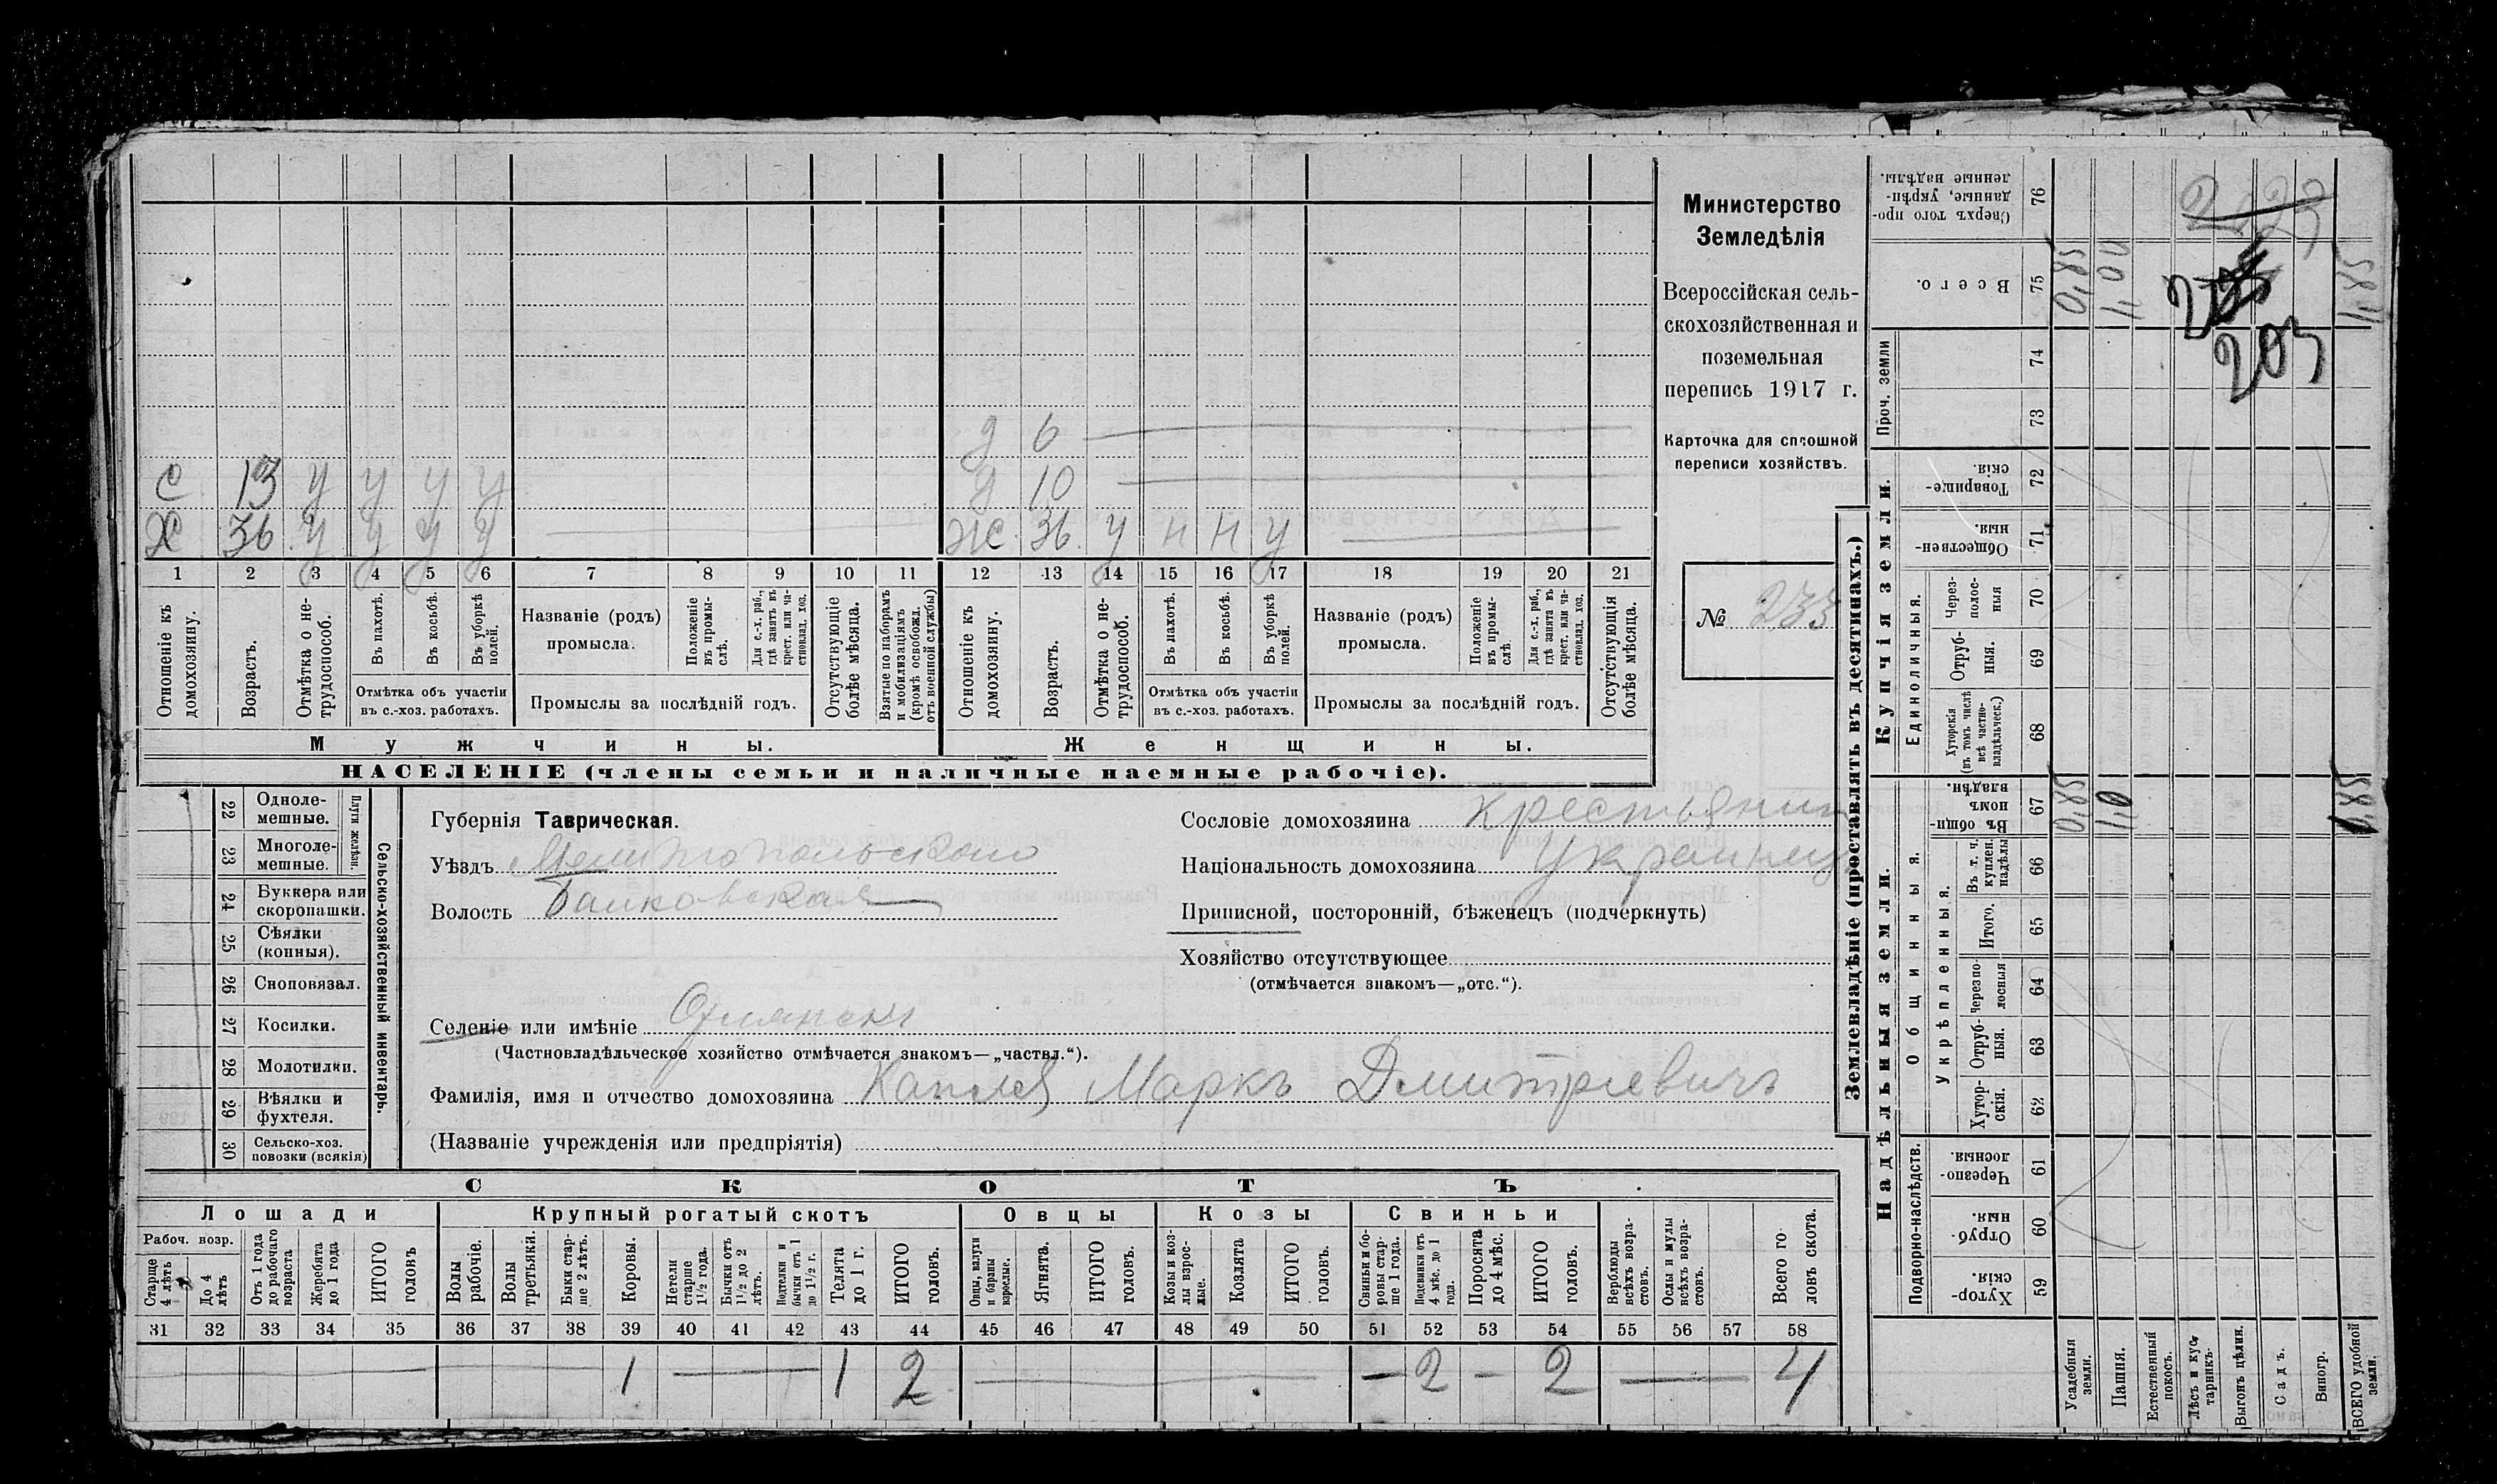 Министерство
Земледѣлія
Всероссійская сель-
скохозяйственная и
поземельная
перепись 1917 г.
Карточка для сплошной
переписи хозяйствъ.
№ 233
д 6
С 13 у у у у
д 10
Х 36 у у у у
Ж 36 у н н у
1 2 3 4 5 6 7 8 9 10 11 12 13 14 15 16 17 18 19 20 21
Отношеніе къ домохозяину.
Возрастъ.
Отмѣтка о не-трудоспособ.
Въ пахотѣ.
Въ косьбѣ.
Въ уборкѣ полей.
Отмѣтка объ участіи
въ с.-хоз. работахъ.
Названіе (родъ)
промысла.
Положеніе въ промы-слѣ.
Для с.-х. раб., гдѣ занятъ въ крест. или ча-стновлад. хоз.
Промыслы за послѣдній годъ.
Отсутствующіе болѣе мѣсяца.
Взятые по наборамъ и мобилизаціямъ (кромѣ освобожд. отъ военной службы)
Отношеніе къ домохозяину.
Возрастъ.
Отмѣтка о не-трудоспособ.
Въ пахотѣ.
Въ косьбѣ.
Въ уборкѣ полей.
Отмѣтка объ участіи
въ с.-хоз. работахъ.
Названіе (родъ)
промысла.
Положеніе въ промы-слѣ.
Для с.-х. раб., гдѣ занята въ крест. или ча-стновлад. хоз.
Промыслы за послѣдній годъ.
Отсутствующія болѣе мѣсяца.
Мужчины.
Женщины.
НАСЕЛЕНІЕ (члены семьи и наличные наемные рабочіе).
22 Одноле-мешные.
23 Многоле-мешные.
Плуги желѣзн.
24 Буккера или скоропашки.
25 Сѣялки (конныя).
26 Сноповязал.
27 Косилки.
28 Молотилки.
29 Вѣялки и фухтеля.
30 Сельско-хоз. повозки (всякія)
Сельско-хозяйственный инвентарь.
Губернія Таврическая.
Уѣздъ Мелитопольскаго
Волость
Селеніе или имѣніе
(Частновладѣльческое хозяйство отмѣчается знакомъ—„частвл.“).
Фамилія, имя и отчество домохозяина Маркъ Дмитріевичъ
(Названіе учрежденія или предпріятія)
Сословіе домохозяина крестьянин
Національность домохозяина Украинецъ
Приписной, посторонній, бѣженецъ (подчеркнуть)
Хозяйство отсутствующее
(отмѣчается знакомъ—„отс.“).
СКОТЪ
Лошади
Крупный рогатый скотъ
Овцы
Козы
Свиньи
Рабоч. возр.
Старше 4 лѣтъ
До 4 лѣтъ
Отъ 1 года до рабочаго возраста
Жеребята до 1 года
ИТОГО головъ
Волы рабочіе.
Волы третьяки.
Быки стар-ше 2 лѣтъ.
Коровы.
Нетели старше 1½ года.
Бычки отъ 1½ до 2 лѣтъ.
Подтелки и бычки отъ 1 до 1½ г.
Телята до 1 г.
ИТОГО головъ.
Овцы, валухи и бараны взрослые.
Ягнята.
ИТОГО головъ.
Козы и коз-лы взрос-лые.
Козлята
ИТОГО головъ.
Свиньи и бо-ровы стар-ше 1 года.
Подсвинки отъ 4 мѣс. до 1 года.
Поросята до 4 мѣс.
ИТОГО головъ.
Верблюды всѣхъ возра-стовъ.
Ослы и мулы всѣхъ возра-стовъ.
Всего го-ловъ скота.
31 32 33 34 35 36 37 38 39 40 41 42 43 44 45 46 47 48 49 50 51 52 53 54 55 56 57 58
1 — 1 2 — 2 — 2 — 4
Землевладѣніе (проставлять въ десятинахъ.)
Сверхъ того про-данные, укрѣп-ленные надѣлы. 76
Всего. 75
Проч. земли
74
73
Купчія земли.
Товарище-скія. 72
Обществен-ныя. 71
Единоличныя.
Через-полос-ныя 70
Отруб-ныя. 69
Хуторскія (въ томъ числѣ всѣ частно-владѣльческ.) 68
Надѣльныя земли.
Общинныя.
Въ общин-номъ владѣн. 67
Укрѣпленныя.
Въ т. ч. куплен. надѣлы 66
Итого. 65
Черезпо-лосныя 64
Отруб-ныя. 63
Хутор-скія. 62
Подворно-наслѣдств.
Черезпо-лосныя. 61
Отруб-ныя. 60
Хутор-скія. 59
Усадебныя земли.
Пашня.
Естественный покосъ.
Лѣсъ и кус-тарникъ.
Выгонъ цѣлин.
Садъ.
Виногр.
ВСЕГО удобной земли.
203